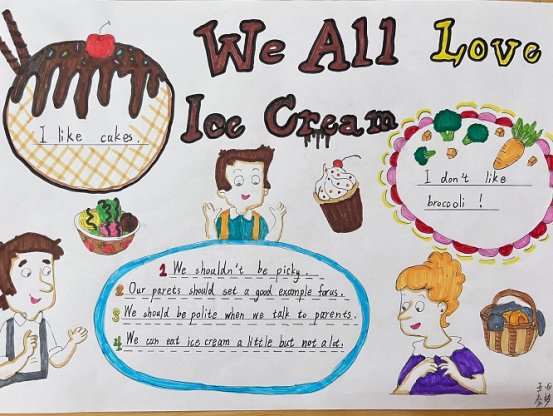 We All Love
Ice Cream
I like cakes.
I don't like
brocoli !
1 We shouldn't be picky.
2 Our parets should set a good example forus.
3 We should be polite when we talk to parents.
4 We can eat ice cream a little but not a lot.